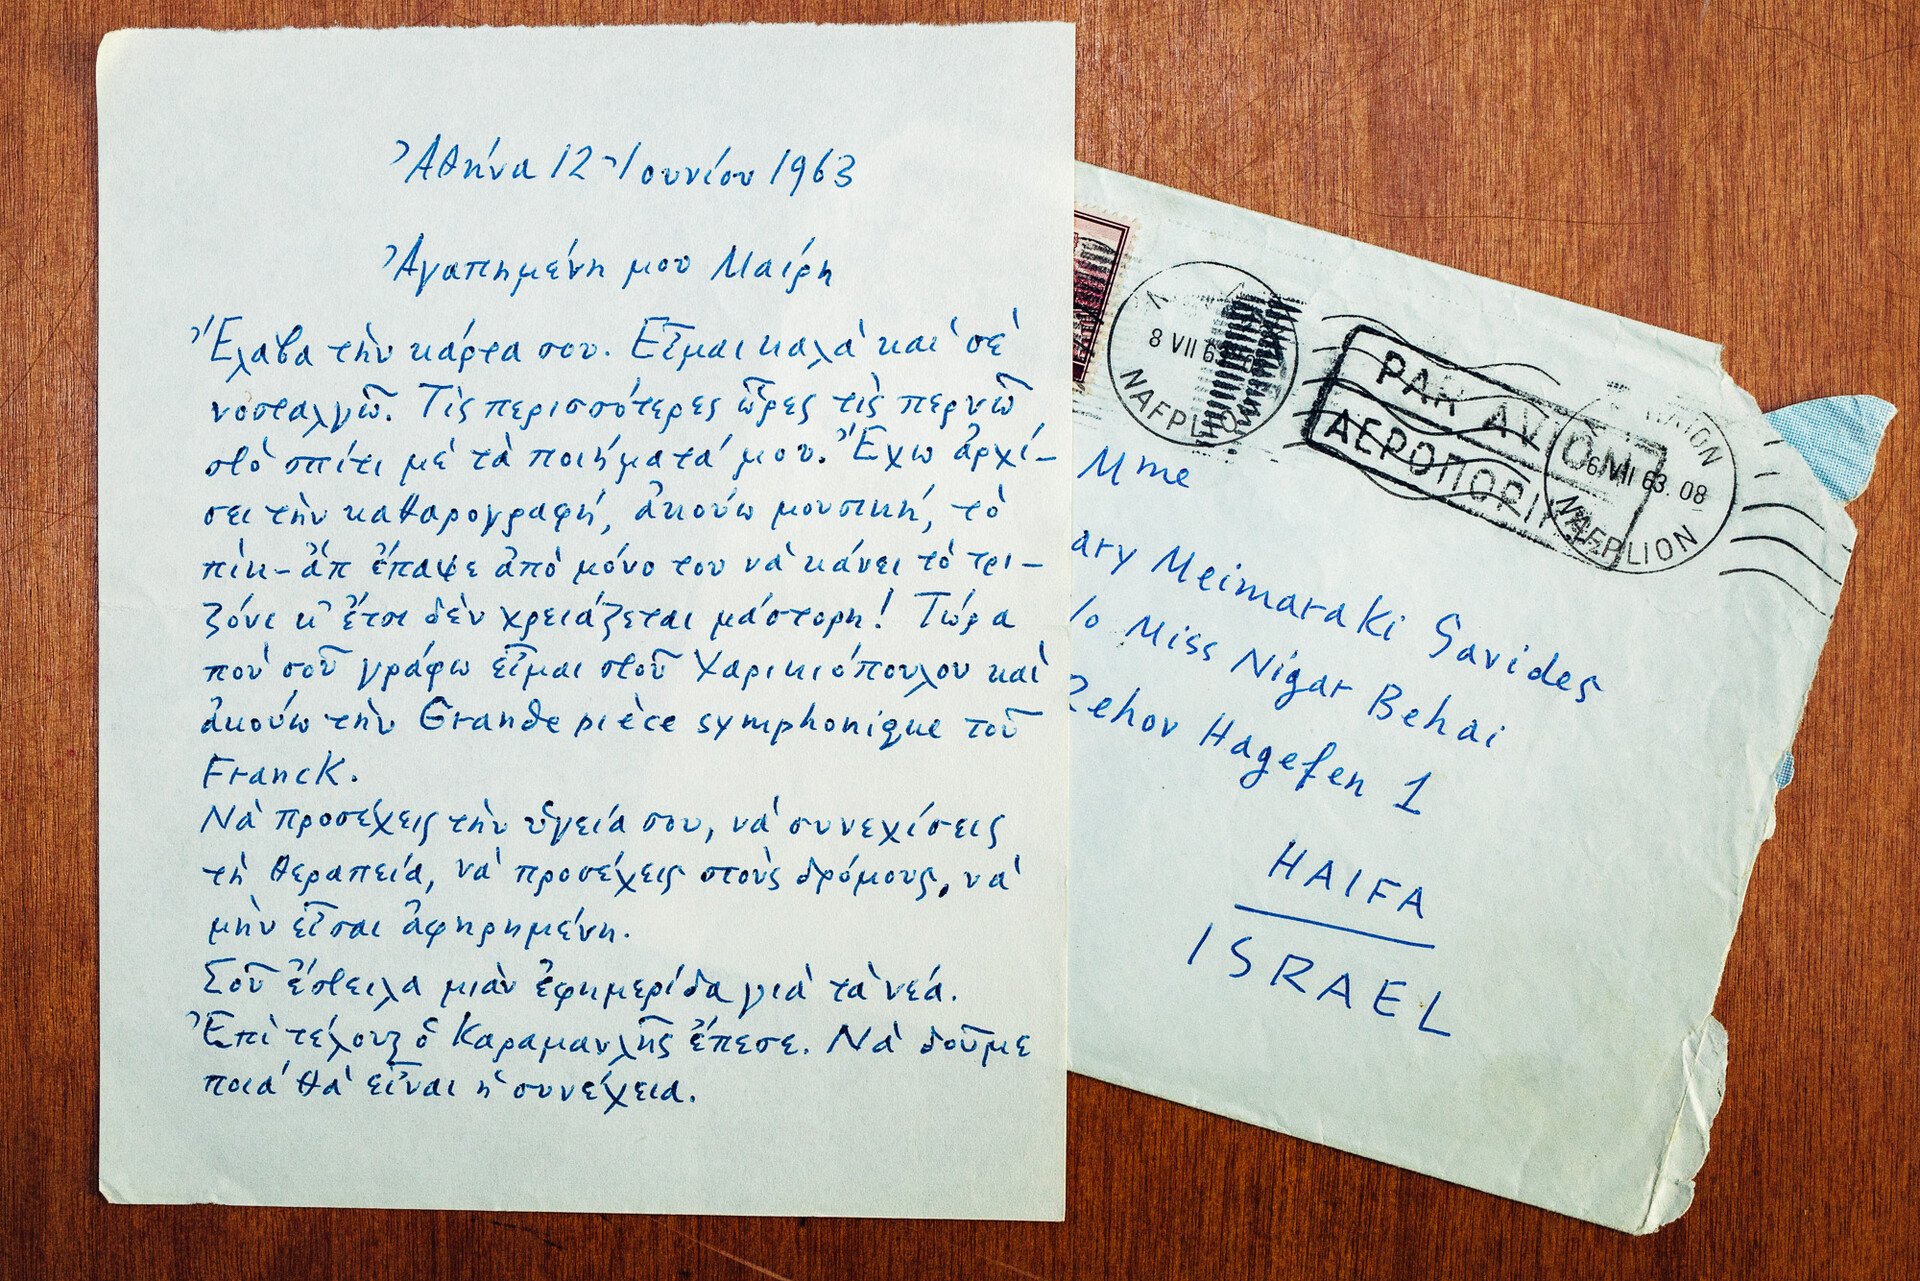 Ἀθήνα 12 Ἰουνίου 1963
Ἀγαπημένη μου Μαίρη
Ἔλαβα τὴν κάρτα σου. Εἶμαι καλὰ καὶ σὲ
νοσταλγῶ. Τὶς περισσότερες ὧρες τὶς περνῶ
στὸ σπίτι μὲ τὰ ποιήματά μου. Ἔχω ἀρχί-
σει τὴν καθαρογραφή, ἀκούω μουσική, τὸ
πὶκ-ἂπ ἔπαψε ἀπὸ μόνο του νὰ κάνει τὸ τρι-
ζόνι κ' ἔτσι δὲν χρειάζεται μάστορη! Τώρα
ποὺ σοῦ γράφω εἶμαι στοῦ Χαρικιόπουλου καὶ
ἀκούω τὴν Grande pièce symphonique τοῦ
Franck.
Νὰ προσέχεις τὴν ὑγεία σου, νὰ συνεχίσεις
τὴ θεραπεία, νὰ προσέχεις στοὺς δρόμους, νὰ
μὴν εἶσαι ἀφηρημένη.
Σοῦ ἔστειλα μιὰν ἐφημερίδα γιὰ τὰ νέα.
Ἐπὶ τέλους ὁ Καραμανλῆς ἔπεσε. Νὰ δοῦμε
ποιὰ θὰ εἶναι ἡ συνέχεια.
8 VII 63
NAFPLION
PAR AVION
ΑΕΡΟΠΟΡΙΚΩΣ
6 VII 63. 08
NAFPLION
Mme
ary Meimaraki Savides
/o Miss Nigar Behai
Rehov Hagefen 1
HAIFA
ISRAEL